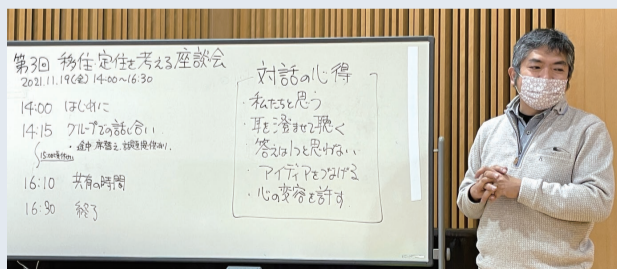 第3回 移住・定住を考える座談会
2021.11.19(金) 14:00〜16:30
14:00 はじめに
14:15 グループでの話し合い
・途中、席替え、話題提供あり。
16:10 共有の時間
16:30 終了
対話の心得
・私たちと思う
・耳を澄ませて聴く
・答えは1つと思わない
・アイディアをつなげる
・心の変容を許す